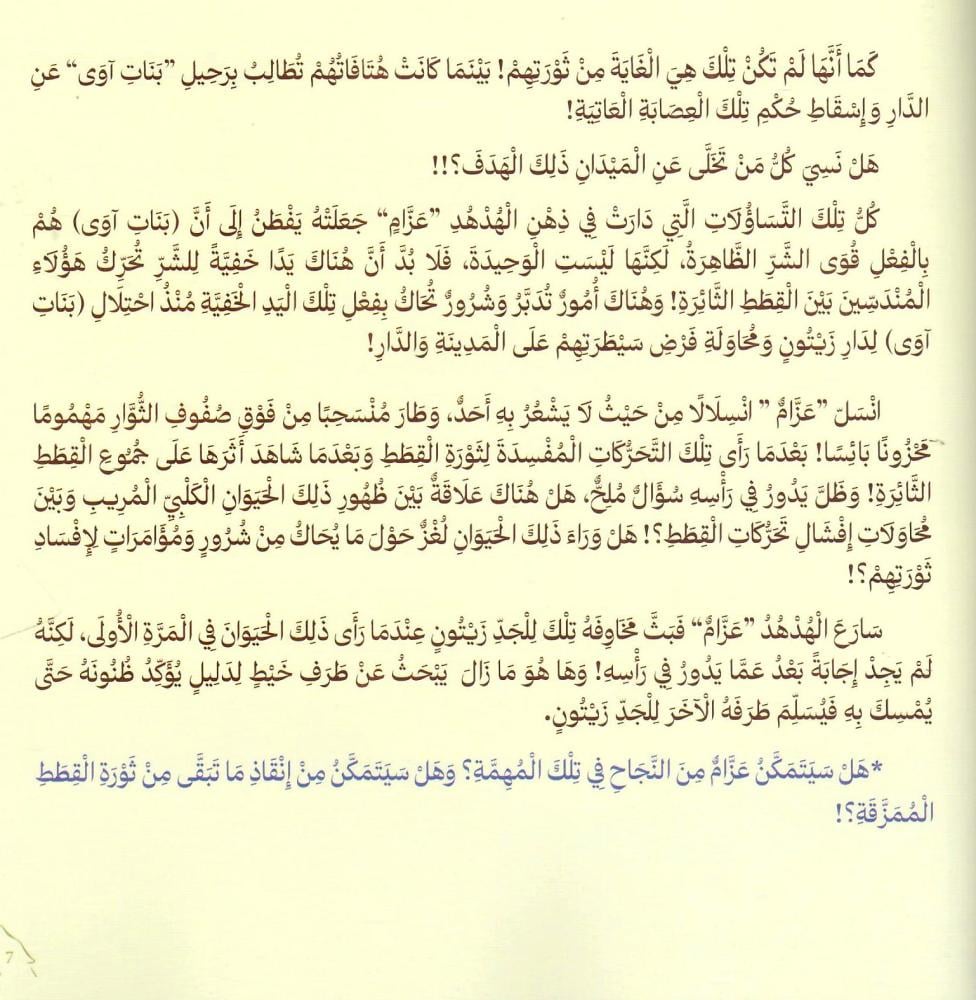 كَمَا أَنَّهَا لَمْ تَكُنْ تِلْكَ هِيَ الْغَايَةَ مِنْ ثَوْرَتِهِمْ! بَيْنَمَا كَانَتْ هُتَافَاتُهُمْ تُطَالِبُ بِرَحِيلِ ”بَنَاتِ آوَى“ عَنِ
الدَّارِ وَإِسْقَاطِ حُكْمِ تِلْكَ الْعِصَابَةِ الْعَاتِيَةِ!
هَلْ نَسِيَ كُلُّ مَنْ تَخَلَّى عَنِ الْمَيْدَانِ ذَلِكَ الْهَدَفَ؟!!
كُلُّ تِلْكَ التَّسَاؤُلَاتِ الَّتِي دَارَتْ فِي ذِهْنِ الْهُدْهُدِ ”عَزَّامٍ“ جَعَلَتْهُ يَفْطَنُ إِلَى أَنَّ (بَنَاتِ آوَى) هُمْ
بِالْفِعْلِ قُوَى الشَّرِّ الظَّاهِرَةُ، لَكِنَّهَا لَيْسَتِ الْوَحِيدَةَ، فَلَا بُدَّ أَنَّ هُنَاكَ يَدًا خَفِيَّةً لِلشَّرِّ تُحَرِّكُ هَؤُلَاءِ
الْمُنْدَسِّينَ بَيْنَ الْقِطَطِ الثَّائِرَةِ! وَهُنَاكَ أُمُورٌ تُدَبَّرُ وَشُرُورٌ تُحَاكُ بِفِعْلِ تِلْكَ الْيَدِ الْخَفِيَّةِ مُنْذُ احْتِلَالِ (بَنَاتِ
آوَى) لِدَارِ زَيْتُونٍ وَمُحَاوَلَةِ فَرْضِ سَيْطَرَتِهِمْ عَلَى الْمَدِينَةِ وَالدَّارِ!
انْسَلّ ”عَزَّامٌ ” انْسِلَالًا مِنْ حَيْثُ لَا يَشْعُرُ بِهِ أَحَدٌ، وَطَارَ مُنْسَحِبًا مِنْ فَوْقِ صُفُوفِ الثُّوَّارِ مَهْمُومًا
مَحْزُونًا بَائِسًا! بَعْدَمَا رَأَى تِلْكَ التَّحَرُّكَاتِ الْمُفْسِدَةَ لِثَوْرَةِ الْقِطَطِ وَبَعْدَمَا شَاهَدَ أَثَرَهَا عَلَى جُمُوعِ الْقِطَطِ
الثَّائِرَةِ! وَظَلَّ يَدُورُ فِي رَأْسِهِ سُؤَالٌ مُلِحٌّ، هَلْ هُنَاكَ عَلَاقَةٌ بَيْنَ ظُهُورِ ذَلِكَ الْحَيَوَانِ الْكَلْبِيِّ الْمُرِيبِ وَبَيْنَ
مُحَاوَلَاتِ إِفْشَالِ تَحَرُّكَاتِ الْقِطَطِ؟! هَلْ وَرَاءَ ذَلِكَ الْحَيَوَانِ لُغْزٌ حَوْلَ مَا يُحَاكُ مِنْ شُرُورٍ وَمُؤَامَرَاتٍ لِإِفْسَادِ
ثَوْرَتِهِمْ؟!
سَارَعَ الْهُدْهُدُ ”عَزَّامٌ“ فَبَثَّ مَخَاوِفَهُ تِلْكَ لِلْجَدِّ زَيْتُونٍ عِنْدَمَا رَأَى ذَلِكَ الْحَيَوَانَ فِي الْمَرَّةِ الْأُولَى، لَكِنَّهُ
لَمْ يَجِدْ إِجَابَةً بَعْدُ عَمَّا يَدُورُ فِي رَأْسِهِ! وَهَا هُوَ مَا زَالَ يَبْحَثُ عَنْ طَرَفِ خَيْطٍ لِدَلِيلٍ يُؤَكِّدُ ظُنُونَهُ حَتَّى
يُمْسِكَ بِهِ فَيُسَلِّمَ طَرَفَهُ الْآخَرَ لِلْجَدِّ زَيْتُونٍ.
*هَلْ سَيَتَمَكَّنُ عَزَّامٌ مِنَ النَّجَاحِ فِي تِلْكَ الْمُهِمَّةِ؟ وَهَلْ سَيَتَمَكَّنُ مِنْ إِنْقَاذِ مَا تَبَقَّى مِنْ ثَوْرَةِ الْقِطَطِ
الْمُمَزَّقَةِ؟!
7